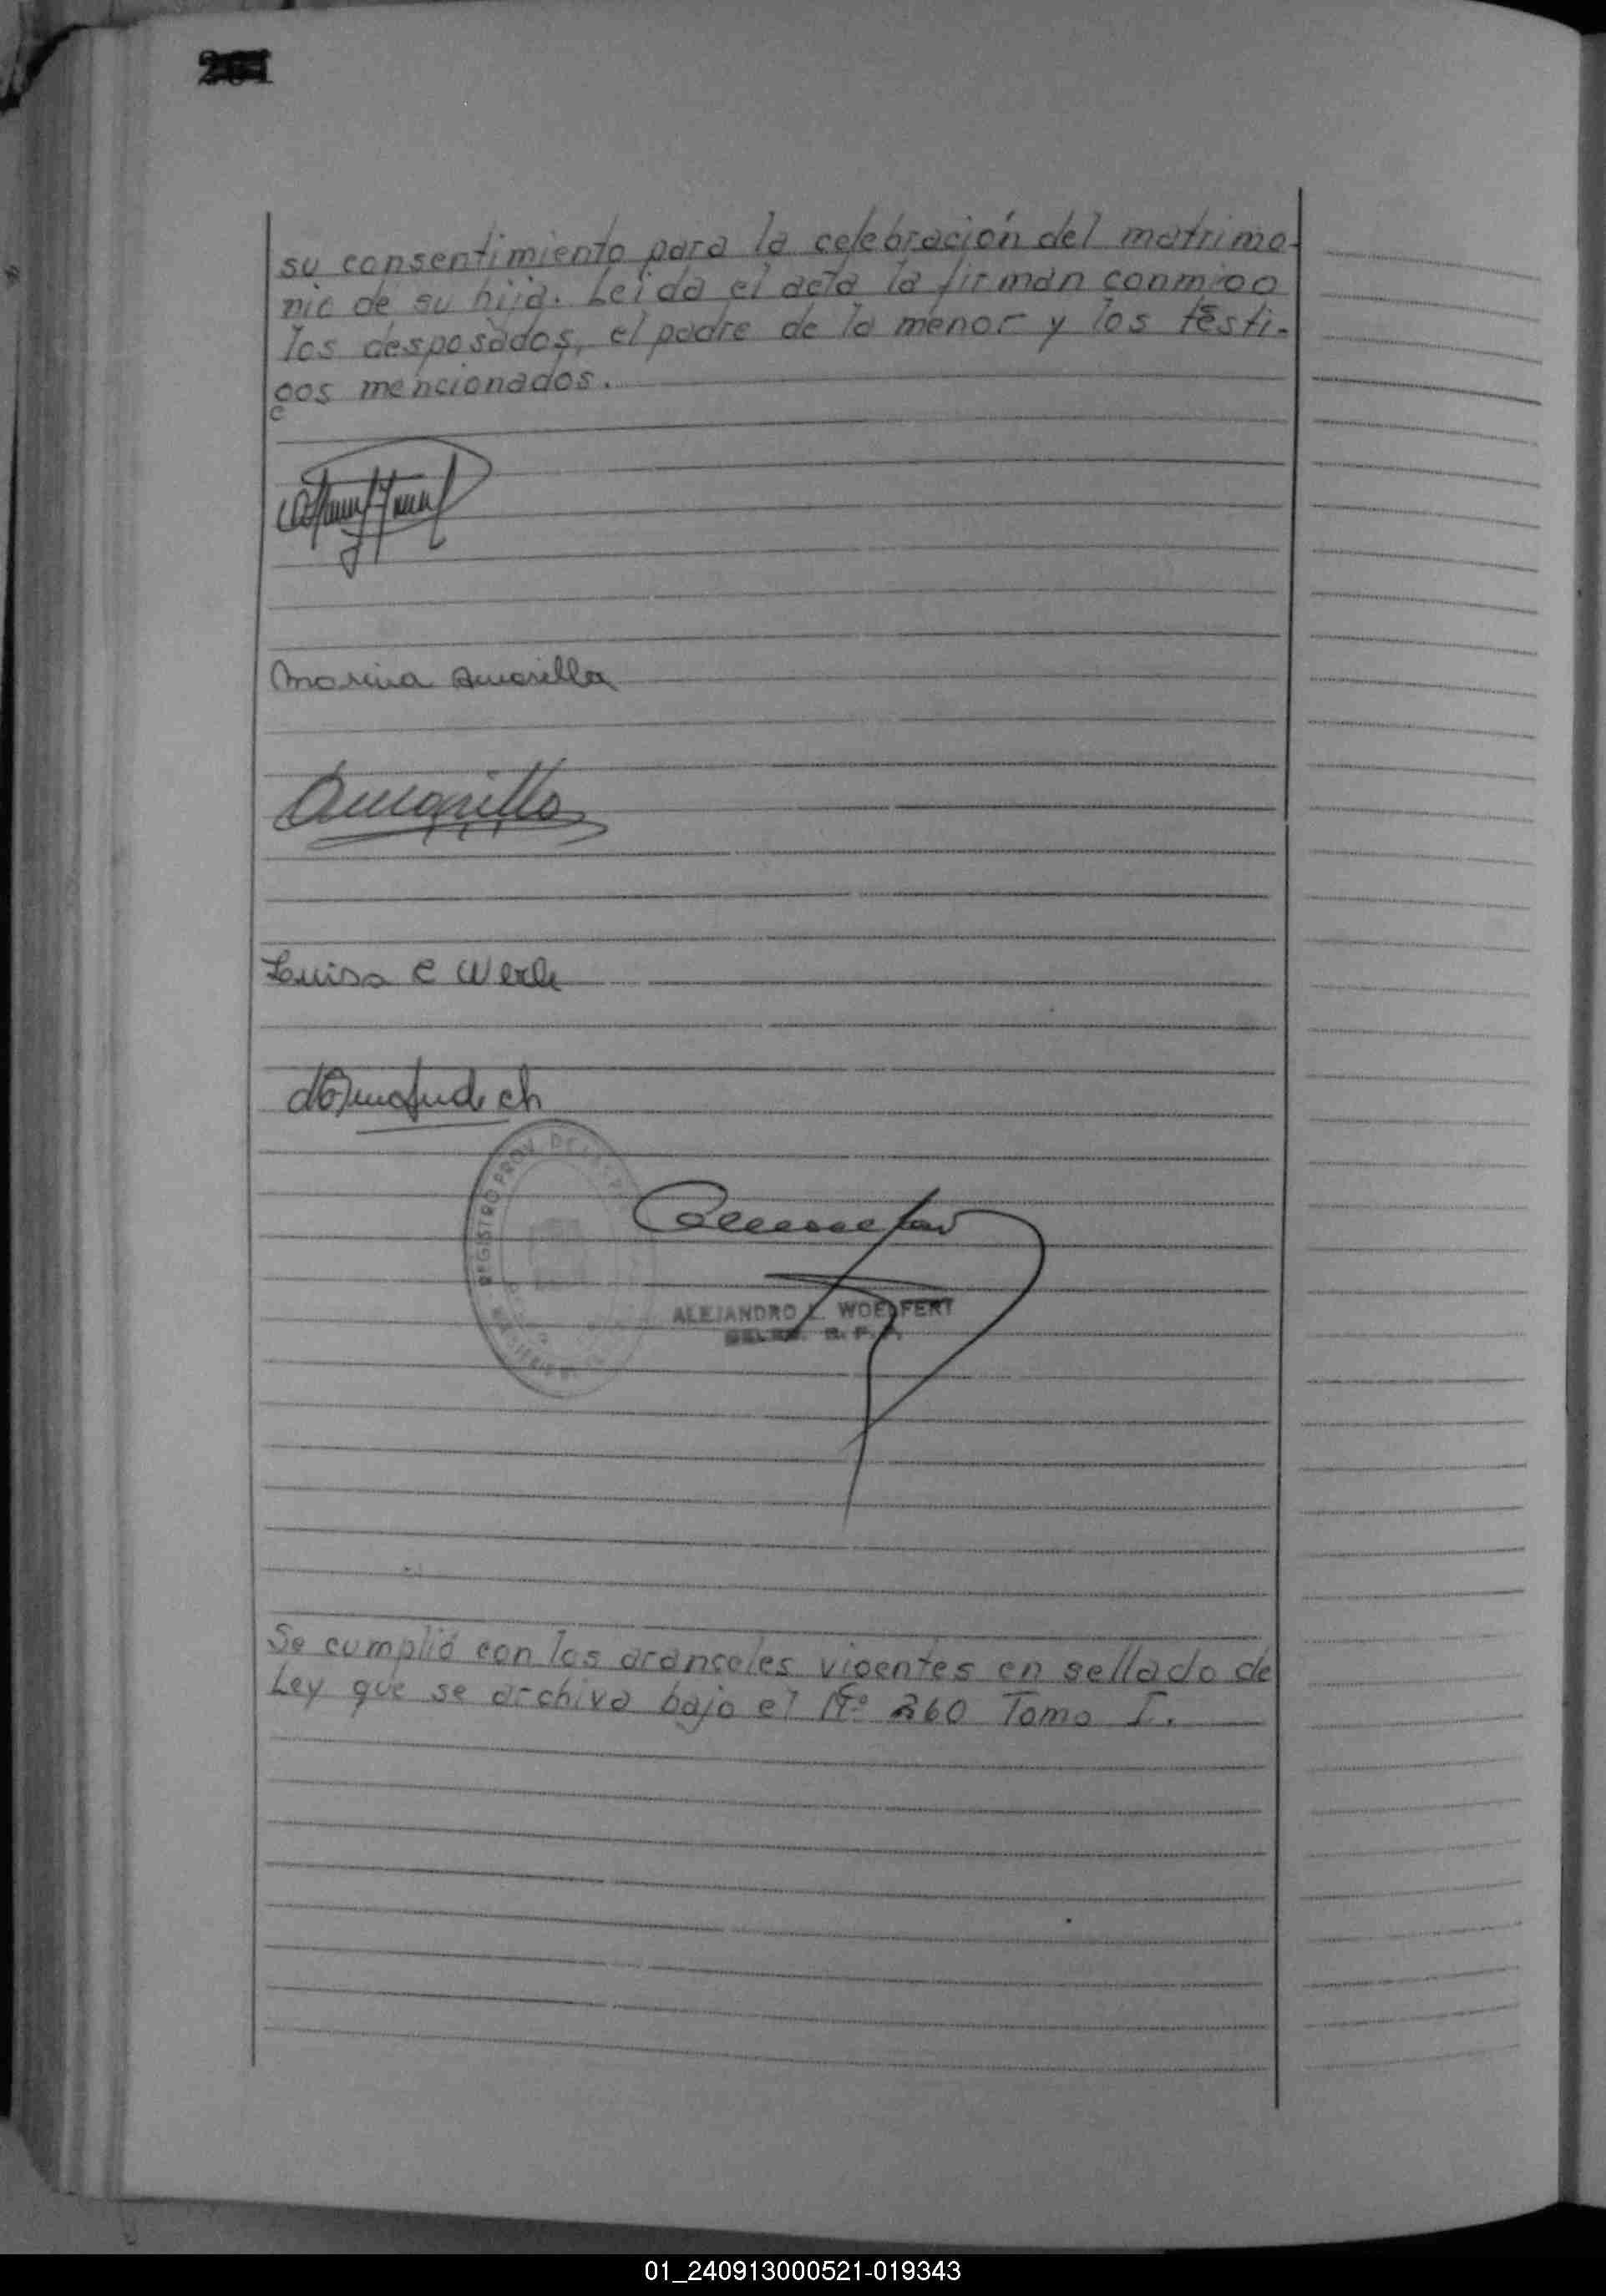 su consentimiento para la celebración del matrimo-
nio de su hija. Leida el acta la firman conmigo
los desposados, el padre de la menor y los testi-
gos mencionados.
Marina Amarilla
Amarilla
Luisa C Werle
REGISTRO PROV. DE
ALEJANDRO L. WOELFERT
R. P.
Se cumplió con los aranceles vigentes en sellado de
Ley que se archiva bajo el Nº 260 Tomo I.
01_240913000521-019343